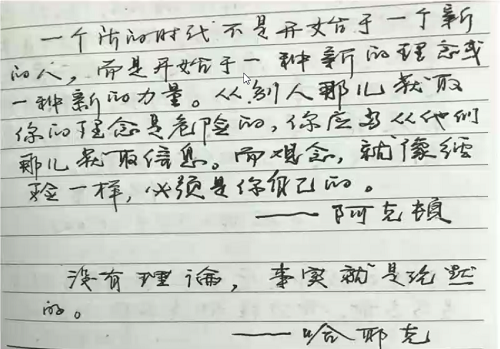 一个新的时代不是开始于一个新
的人，而是开始于一种新的理念或
一种新的力量。从别人那儿获取
你的理念是危险的，你应当从他们
那儿获取信息。而观念，就像经
验一样，必须是你自己的。
——阿克顿
没有理论，事实就是沉默
的。
——哈耶克